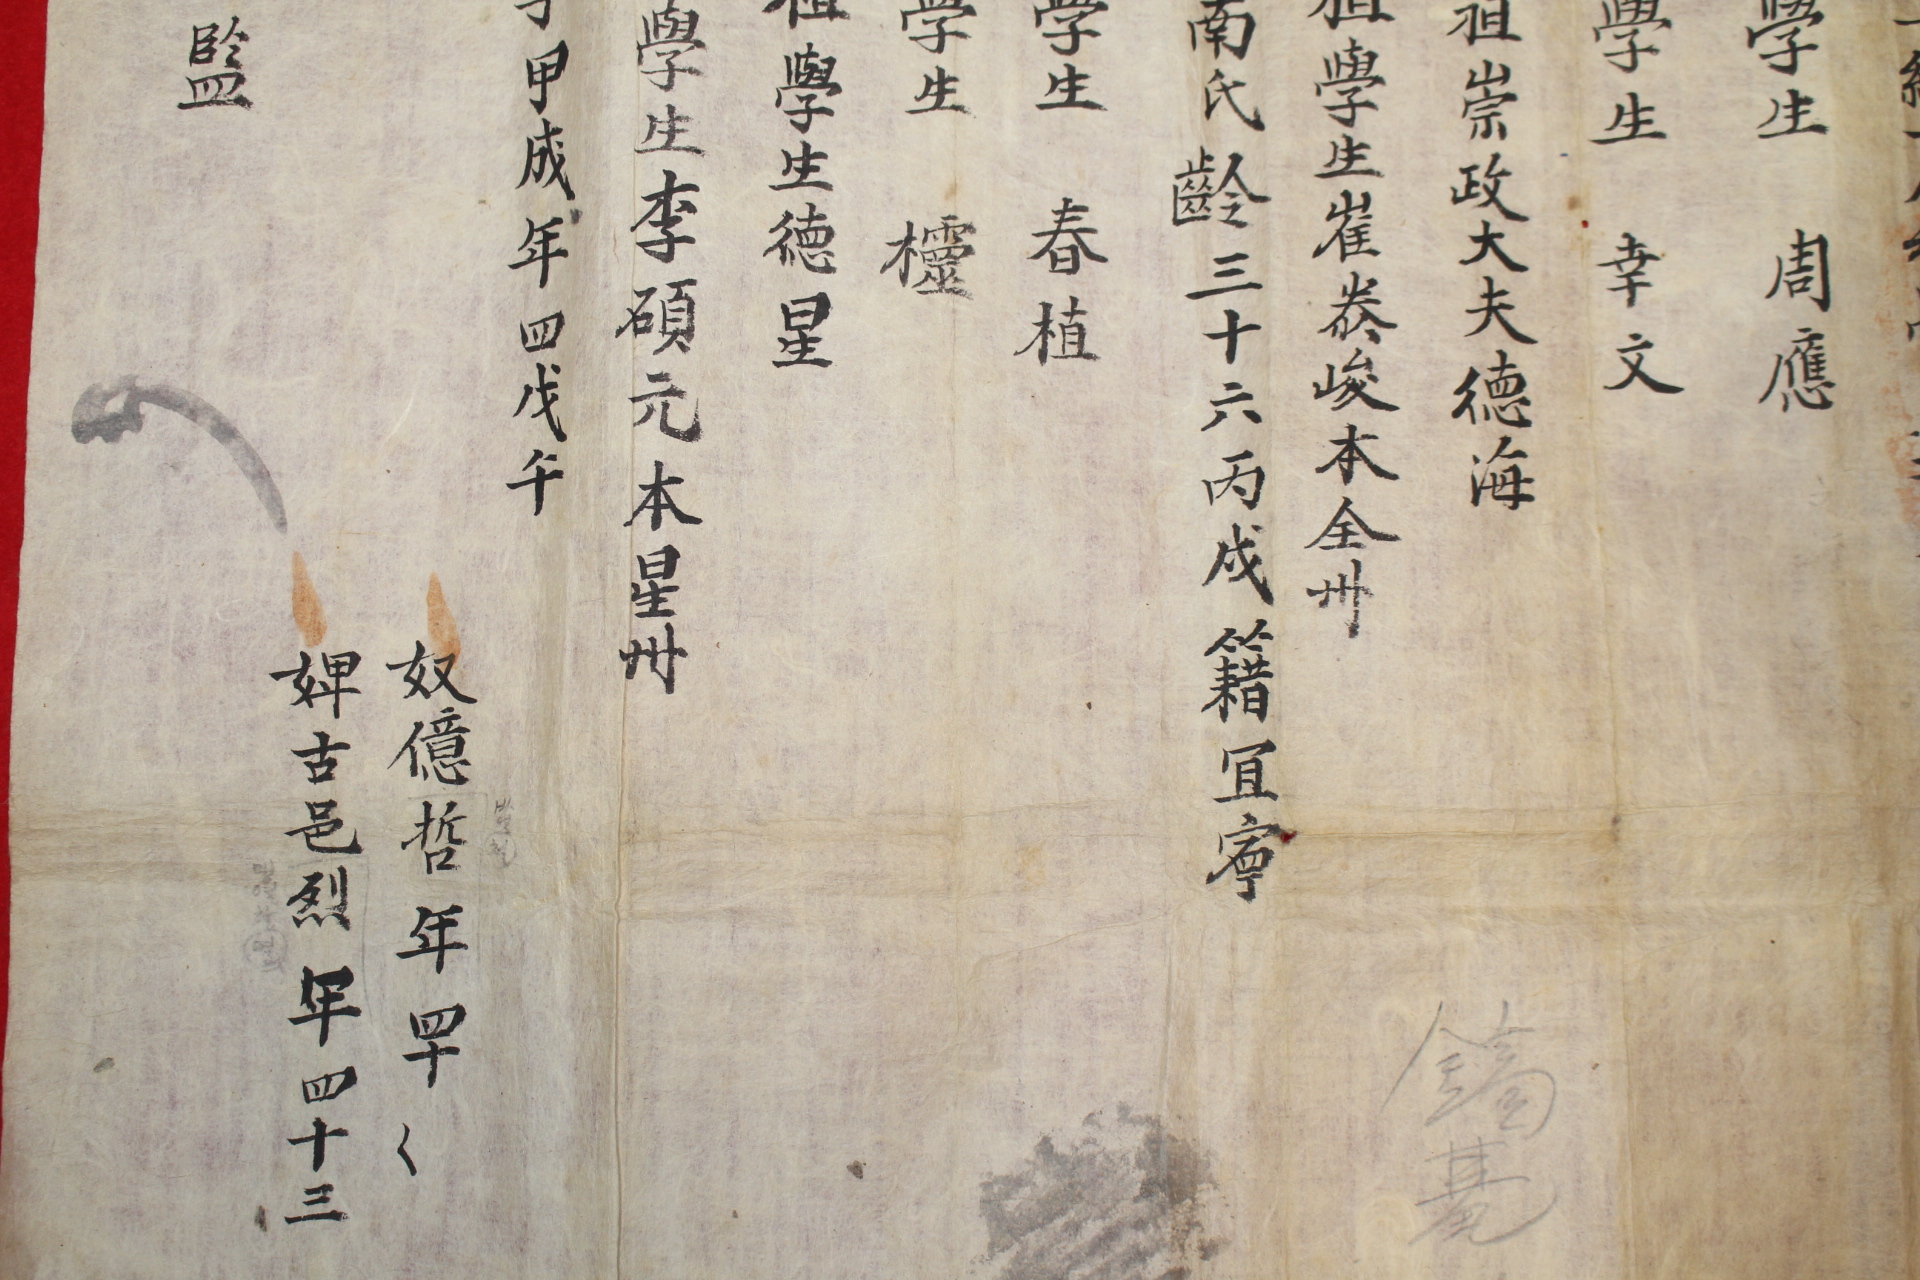 學生 周應
學生 幸文
祖崇政大夫德海
祖學生崔峻本全州
南氏齡三十六丙戌籍宜寧
學生 春植
學生 櫺
祖學生德星
學生李碩元本星州
子甲成年四戊午
奴億哲年四十四
婢古邑烈年四十三
監